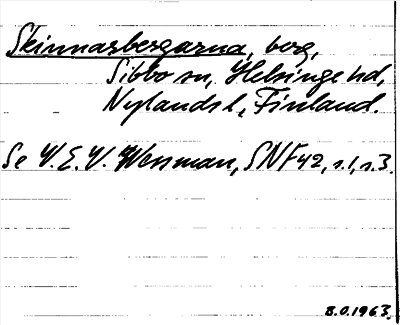 Skinnarbergarna, berg,
Sibbo sn, Helsinge hd,
Nylands l, Finland.
Se V.E.V. Wessman, SNF 42, s.1, s.3.
B.O.1963.